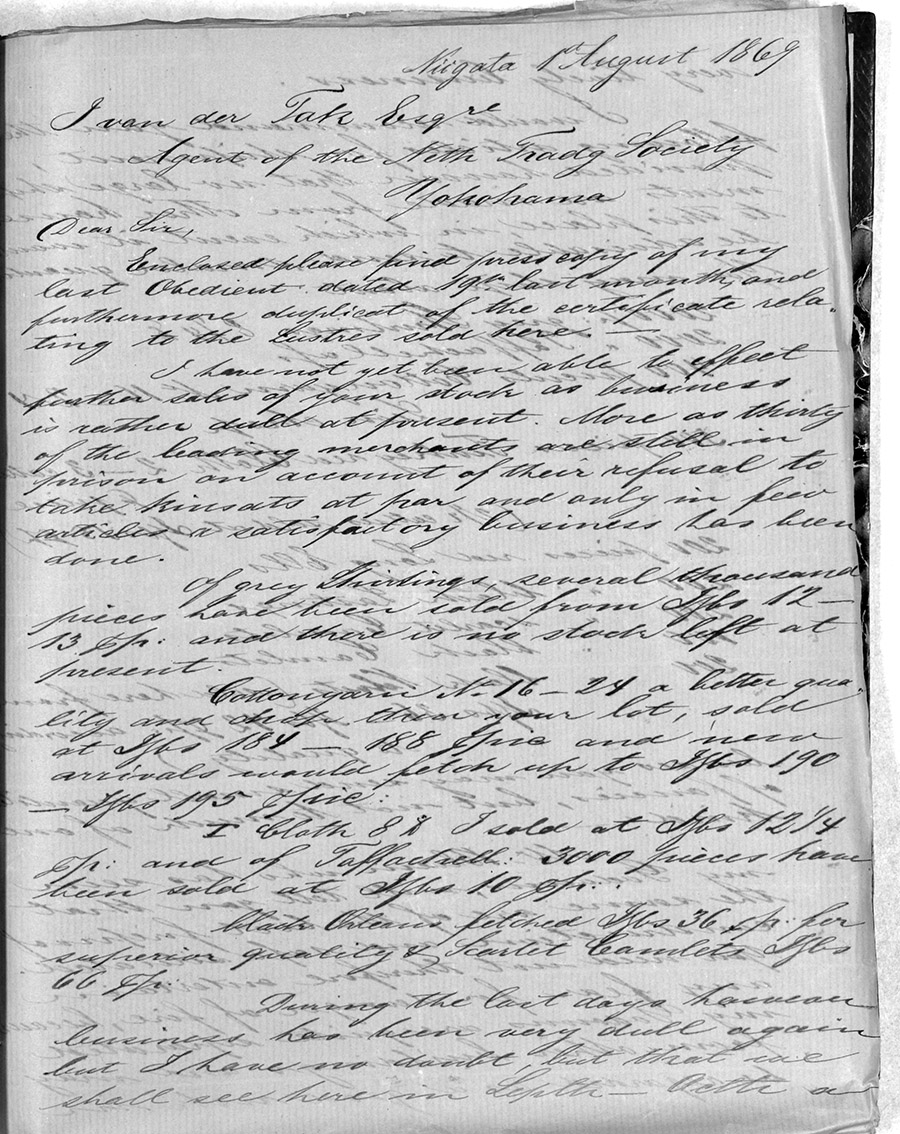 Niigata 1st August 1869
J van der Tak Esqre
Agent of the Neth Tradg Society
Yokohama
Dear Sir,
Enclosed please find presscopy of my
last Obedient dated 19th last month, and
furthermore duplicat of the certificate rela-
ting to the Lustres sold here. —
I have not yet been able to effect
further sales of your stock as business
is rather dull at present. More as thirty
of the leading merchants are still in
prison on account of their refusal to
take Kinsats at par and only in few
articles a satisfactory business has been
done.
Of grey Shirtings, several thousand
pieces have been sold from Ifbs 12 —
13 pp: and there is no stock left at
present.
Cottonyarn No 16 — 24 a better qua-
lity and chop than your lot, sold
at Ifbs 184 — 188 ppic and new
arrivals would fetch up to Ifbs 190
— Ifbs 195 ppic:
T Cloth 8 I sold at Ifbs 12 1/4
pp: and of 3000 pieces have
been sold at Ifbs 10 pp:.
Black Orleans fetched Ifbs 36 pp: for
superior quality & Scarlet Camlets Ifbs
66 pp:
During the last days however
business has been very dull again
but I have no doubt, but that we
shall see here in Septbr — Octbr a